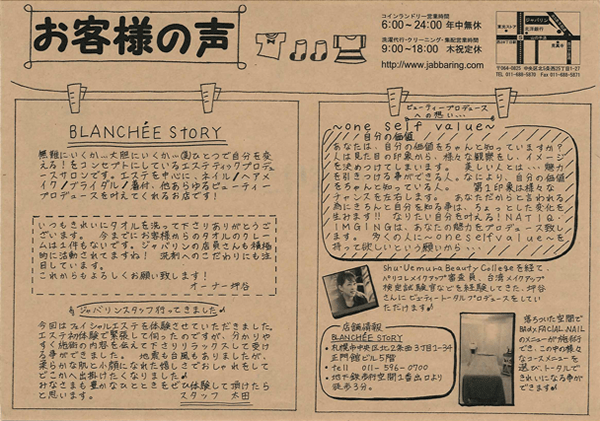 お客様の声
コインランドリー営業時間
6:00~24:00 年中無休
洗濯代行・クリーニング・集配営業時間
9:00~18:00 木祝定休
http://www.jabbaring.com
ジャバリン
〒064-0825 中央区北5条西25丁目1-27
TEL 011-688-5870 Fax 011-688-5871
BLANCHÉE STORY
無難にいくか…大胆にいくか…眉ひとつで自分を変
える!をコンセプトにしているエステティックプロデュ
ースサロンです。エステを中心に、ネイル/ヘアメ
イク/ブライダル/着付。他あらゆるビューティー
プロデュースを叶えてくれるお店です!
いつもきれいにタオルを洗って下さりありがとうご
ざいます。 今までにお客様からのタオルのクレ
ームは1件もないです。ジャバリンの店員さんも積極
的に活動されてますね! 洗剤へのこだわりにも注
目しています。
これからもよろしくお願い致します!
オーナー坪谷
ジャバリンスタッフ行ってきました
今回はフェイシャルエステを体験させていただきました。
エステ初体験で緊張して伺ったのですが、分かりや
すく施術の内容を伝えて下さりリラックスして受け
る事ができました。 地震も台風もありましたが、
柔らかな肌と小顔になれた嬉しさでおしゃれをして
どこかへ出掛けたくなりました
みなさまも豊かなひとときをぜひ体験して頂けたら
と思います。 スタッフ 太田
ビューティープロデュース
への想い…
~one self value~
自分の価値
あなたは、自分の価値をちゃんと知っていますか?
人は見た目の印象から、様々な観察をし、イメージ
を決めつけてしまいます。 美しい人とは…、魅力
を引きつける事ができる人。なにより、自分の価値
をちゃんと知っている人。 第1印象は様々な
チャンスを左右します。 あなただからと言われる
為にきちんと自分を知る事は、ちょっとした変化を
生みます!! なりたい自分を叶える!NATIQ・
IMGINGは、あなたの魅力をプロデュース致し
ます。 多くの人に~one self value~を
持って欲しいという願いから…
Shu-Uemura Beauty Collegeを経て、
パリコレメイクアップ審査員、台湾メイクアップ
検定試験官などを経験してきた、坪谷
さんにビューティートータルプロデュースをしてい
ただけます
店舗情報
BLANCHÉE STORY
札幌市中央区北2条西3丁目1-34
正門館ビル5階
・tell 011-596-0700
・地下鉄歩行空間1番出口より
徒歩3分。
落ちついた空間で
Body, FACIAL, NAIL
のメニューが施術で
き、この中の様々
なコースメニューを
選び、トータルで
きれいになる事が
できます